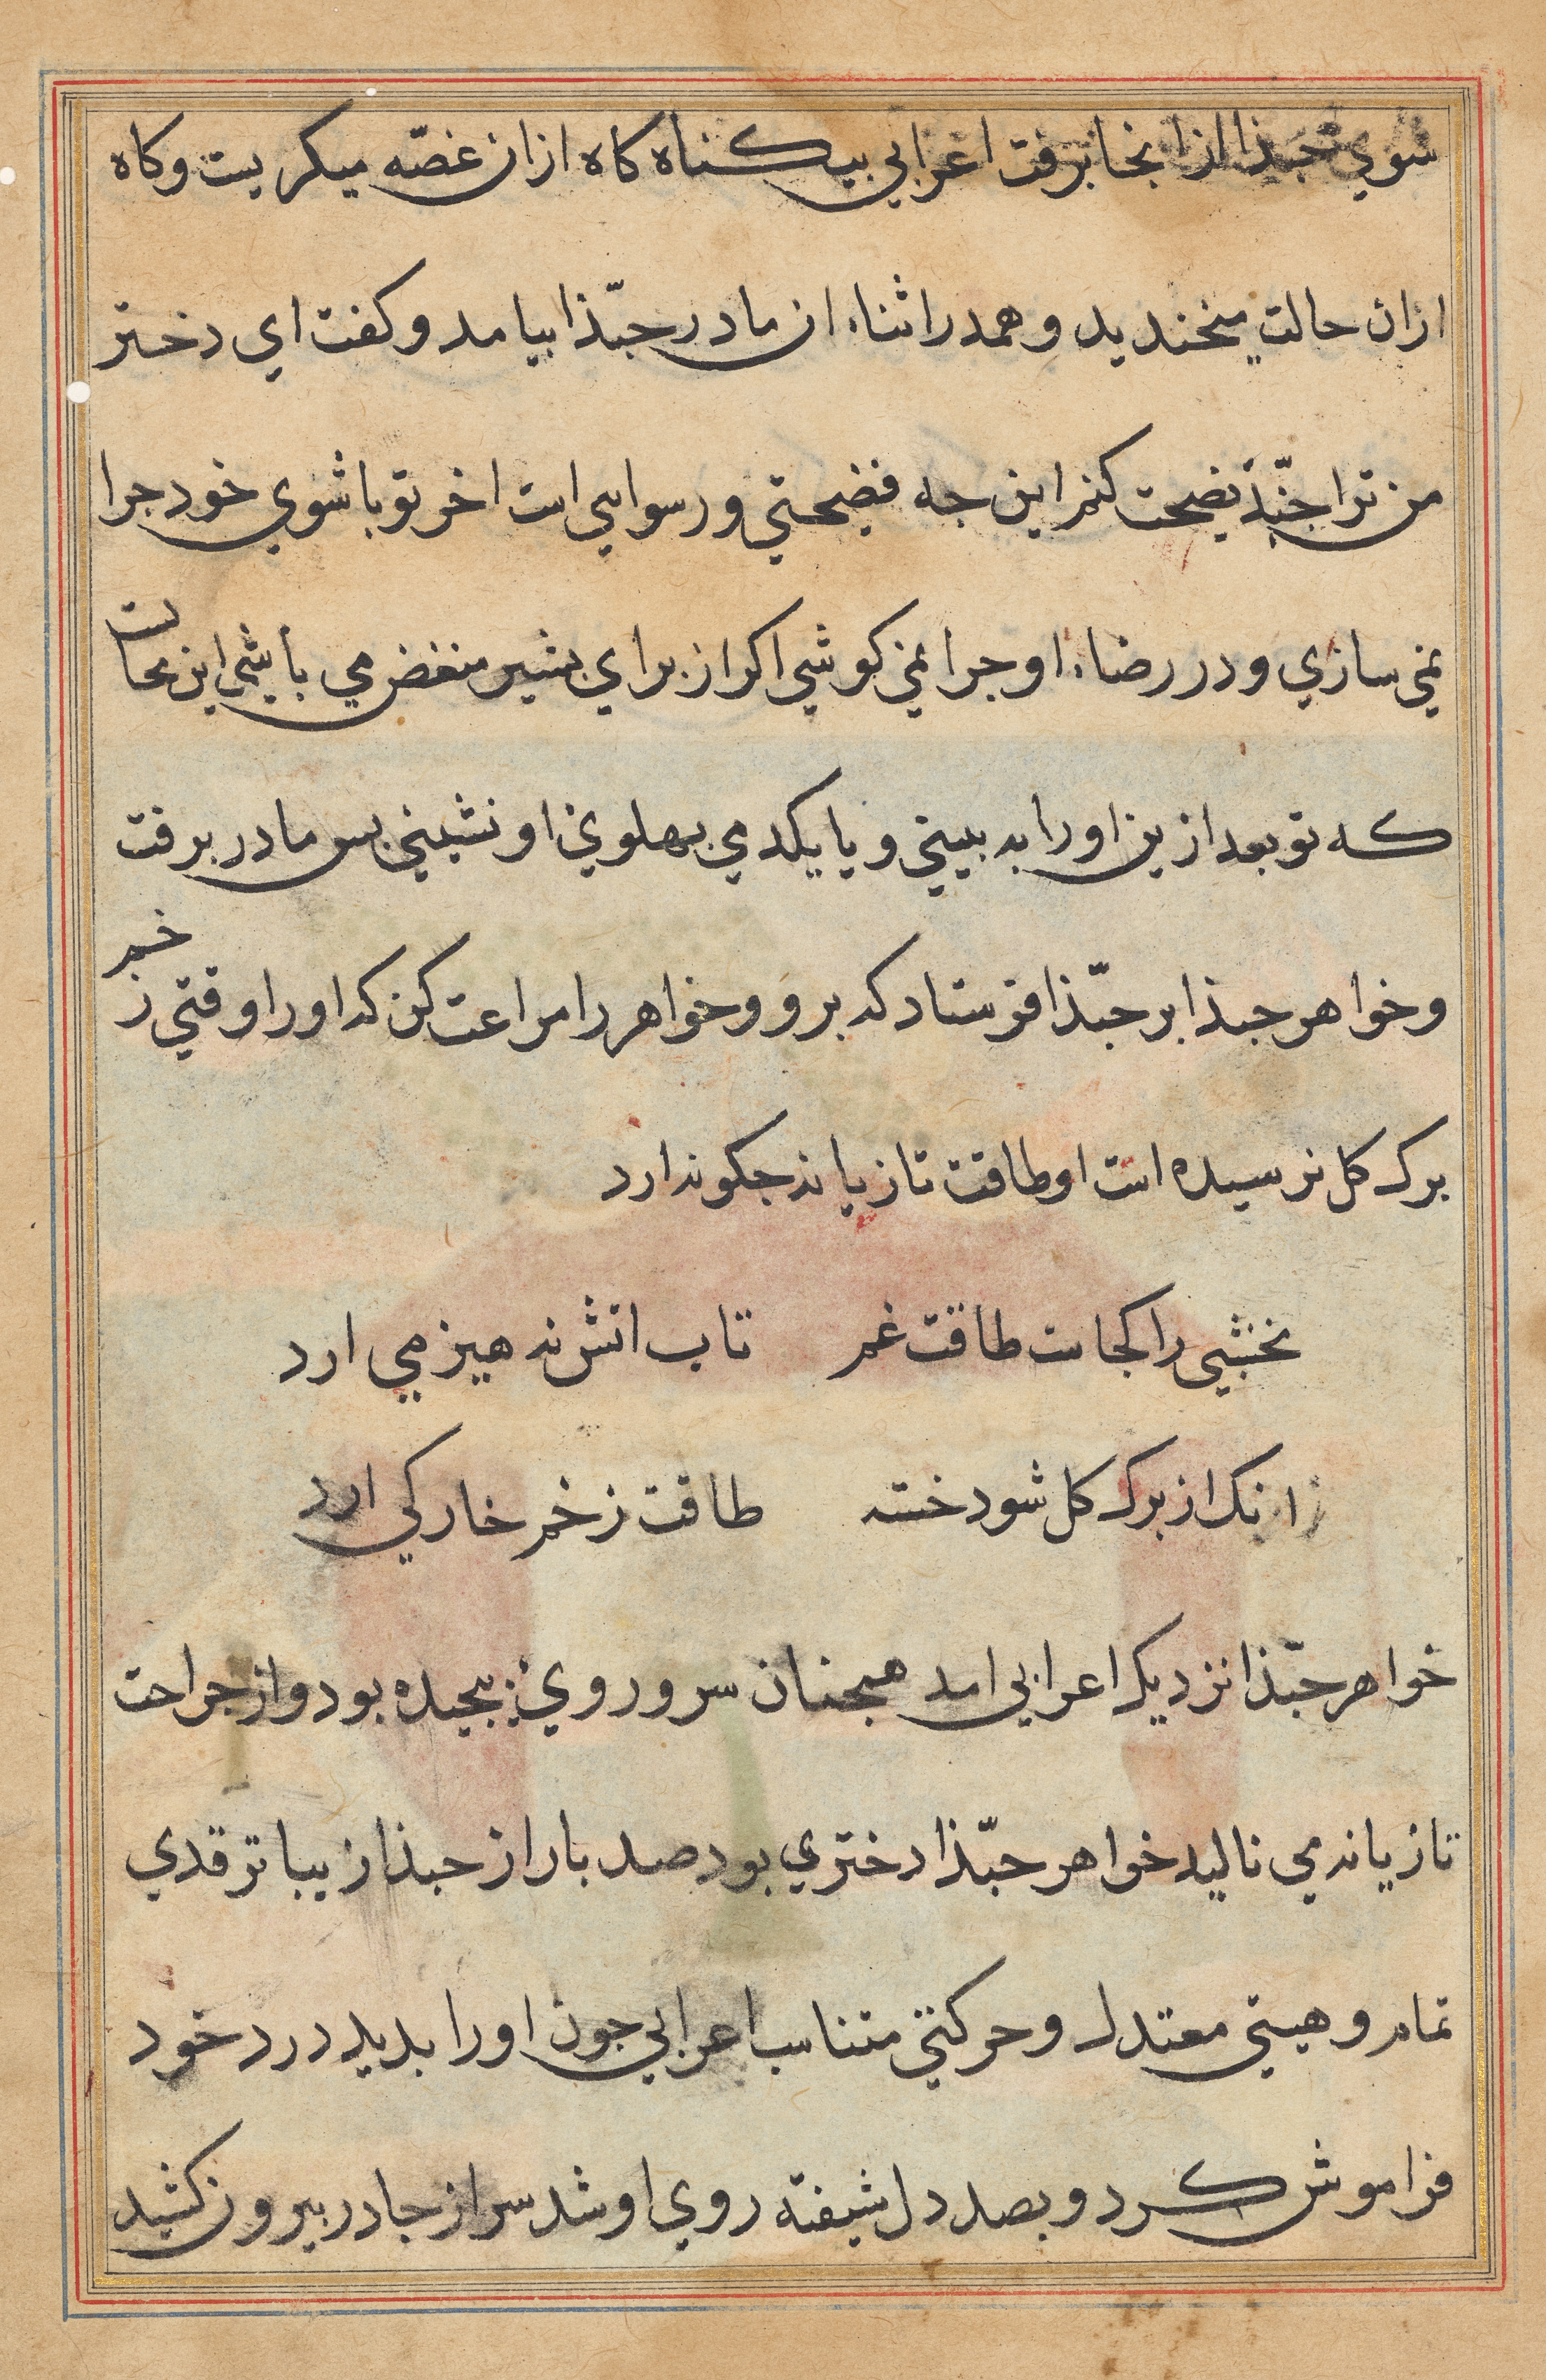 سوي حبذا از انجا برفت اعرابي بيكناه كاه ازان غصّه ميكريست وكاه
ازان حالت ميخنديد و همدر اثناء ان مادر حبّذا بيامد و كفت اي دختر
من ترا جند نصيحت كنم اين جه فضيحتي ورسوايي است اخر تو با شوي خود جرا
نمي سازي و در رضاء او جرا نمي كوشي اكر از براي بشير منغض مي باشي اين محالست
كه تو بعد ازين اورا به بيني و يا يكدمي بهلوي او نشيني بس مادر برفت
و خواهر حبذا بر حبّذا فرستاد كه برو و خواهر را مراعت كن كه اورا وقتي زخم
برك كل نرسيده است او طاقت تازيانه جكونه دارد
نخشبي را كجاست طاقت غم تاب اتش نه هيزمي ارد
زانك از برك كل شود خسته طاقت زخم خار كي ارد
خواهر حبّذا نزديك اعرابي امد همجنان سر و روي بيجيده بود و از جراحت
تازيانه مي ناليد خواهر حبّذا دختري بود صد بار از حبذا زيباتر قدي
تمام و هيتي معتدل و حركتي متناسب اعرابي جون اورا بديد درد خود
فراموش كرد و بصد دل شيفته روي او شد سر از جادر بيرون كشيد